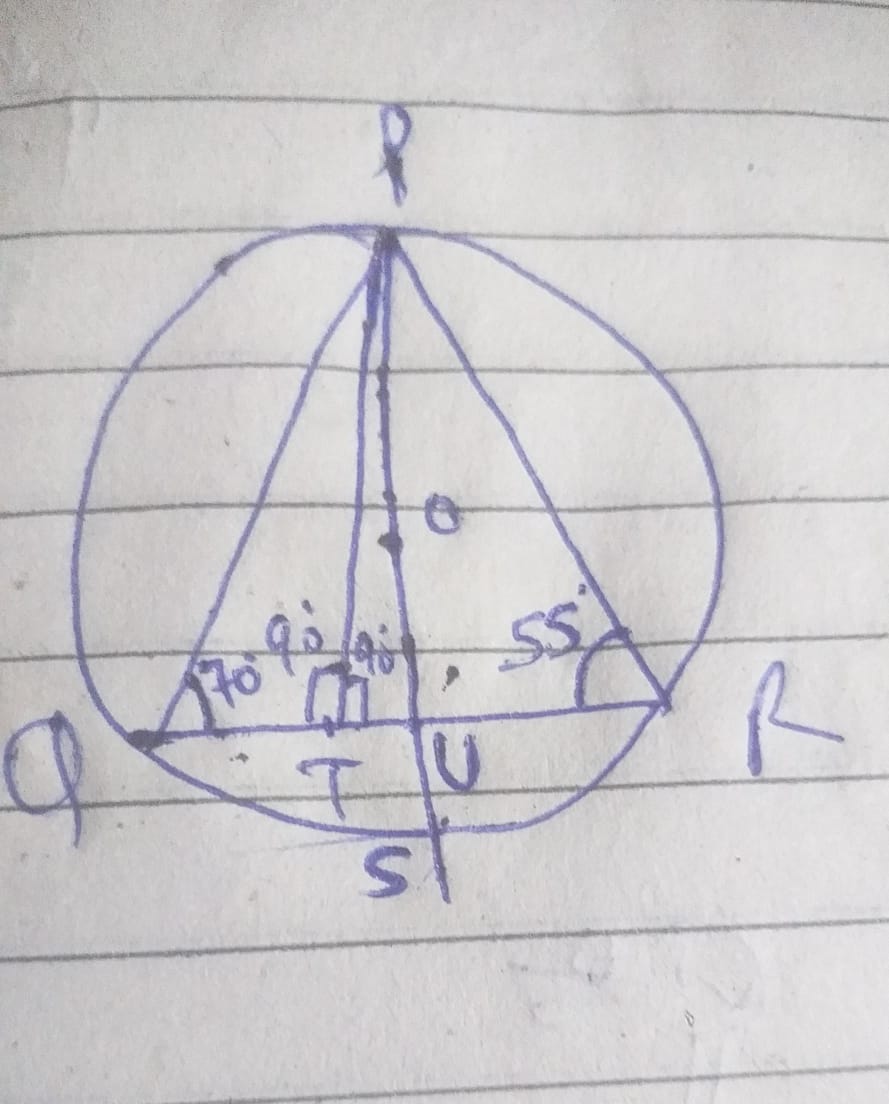 P
O
90° 90° 55°
70°
Q T U R
S